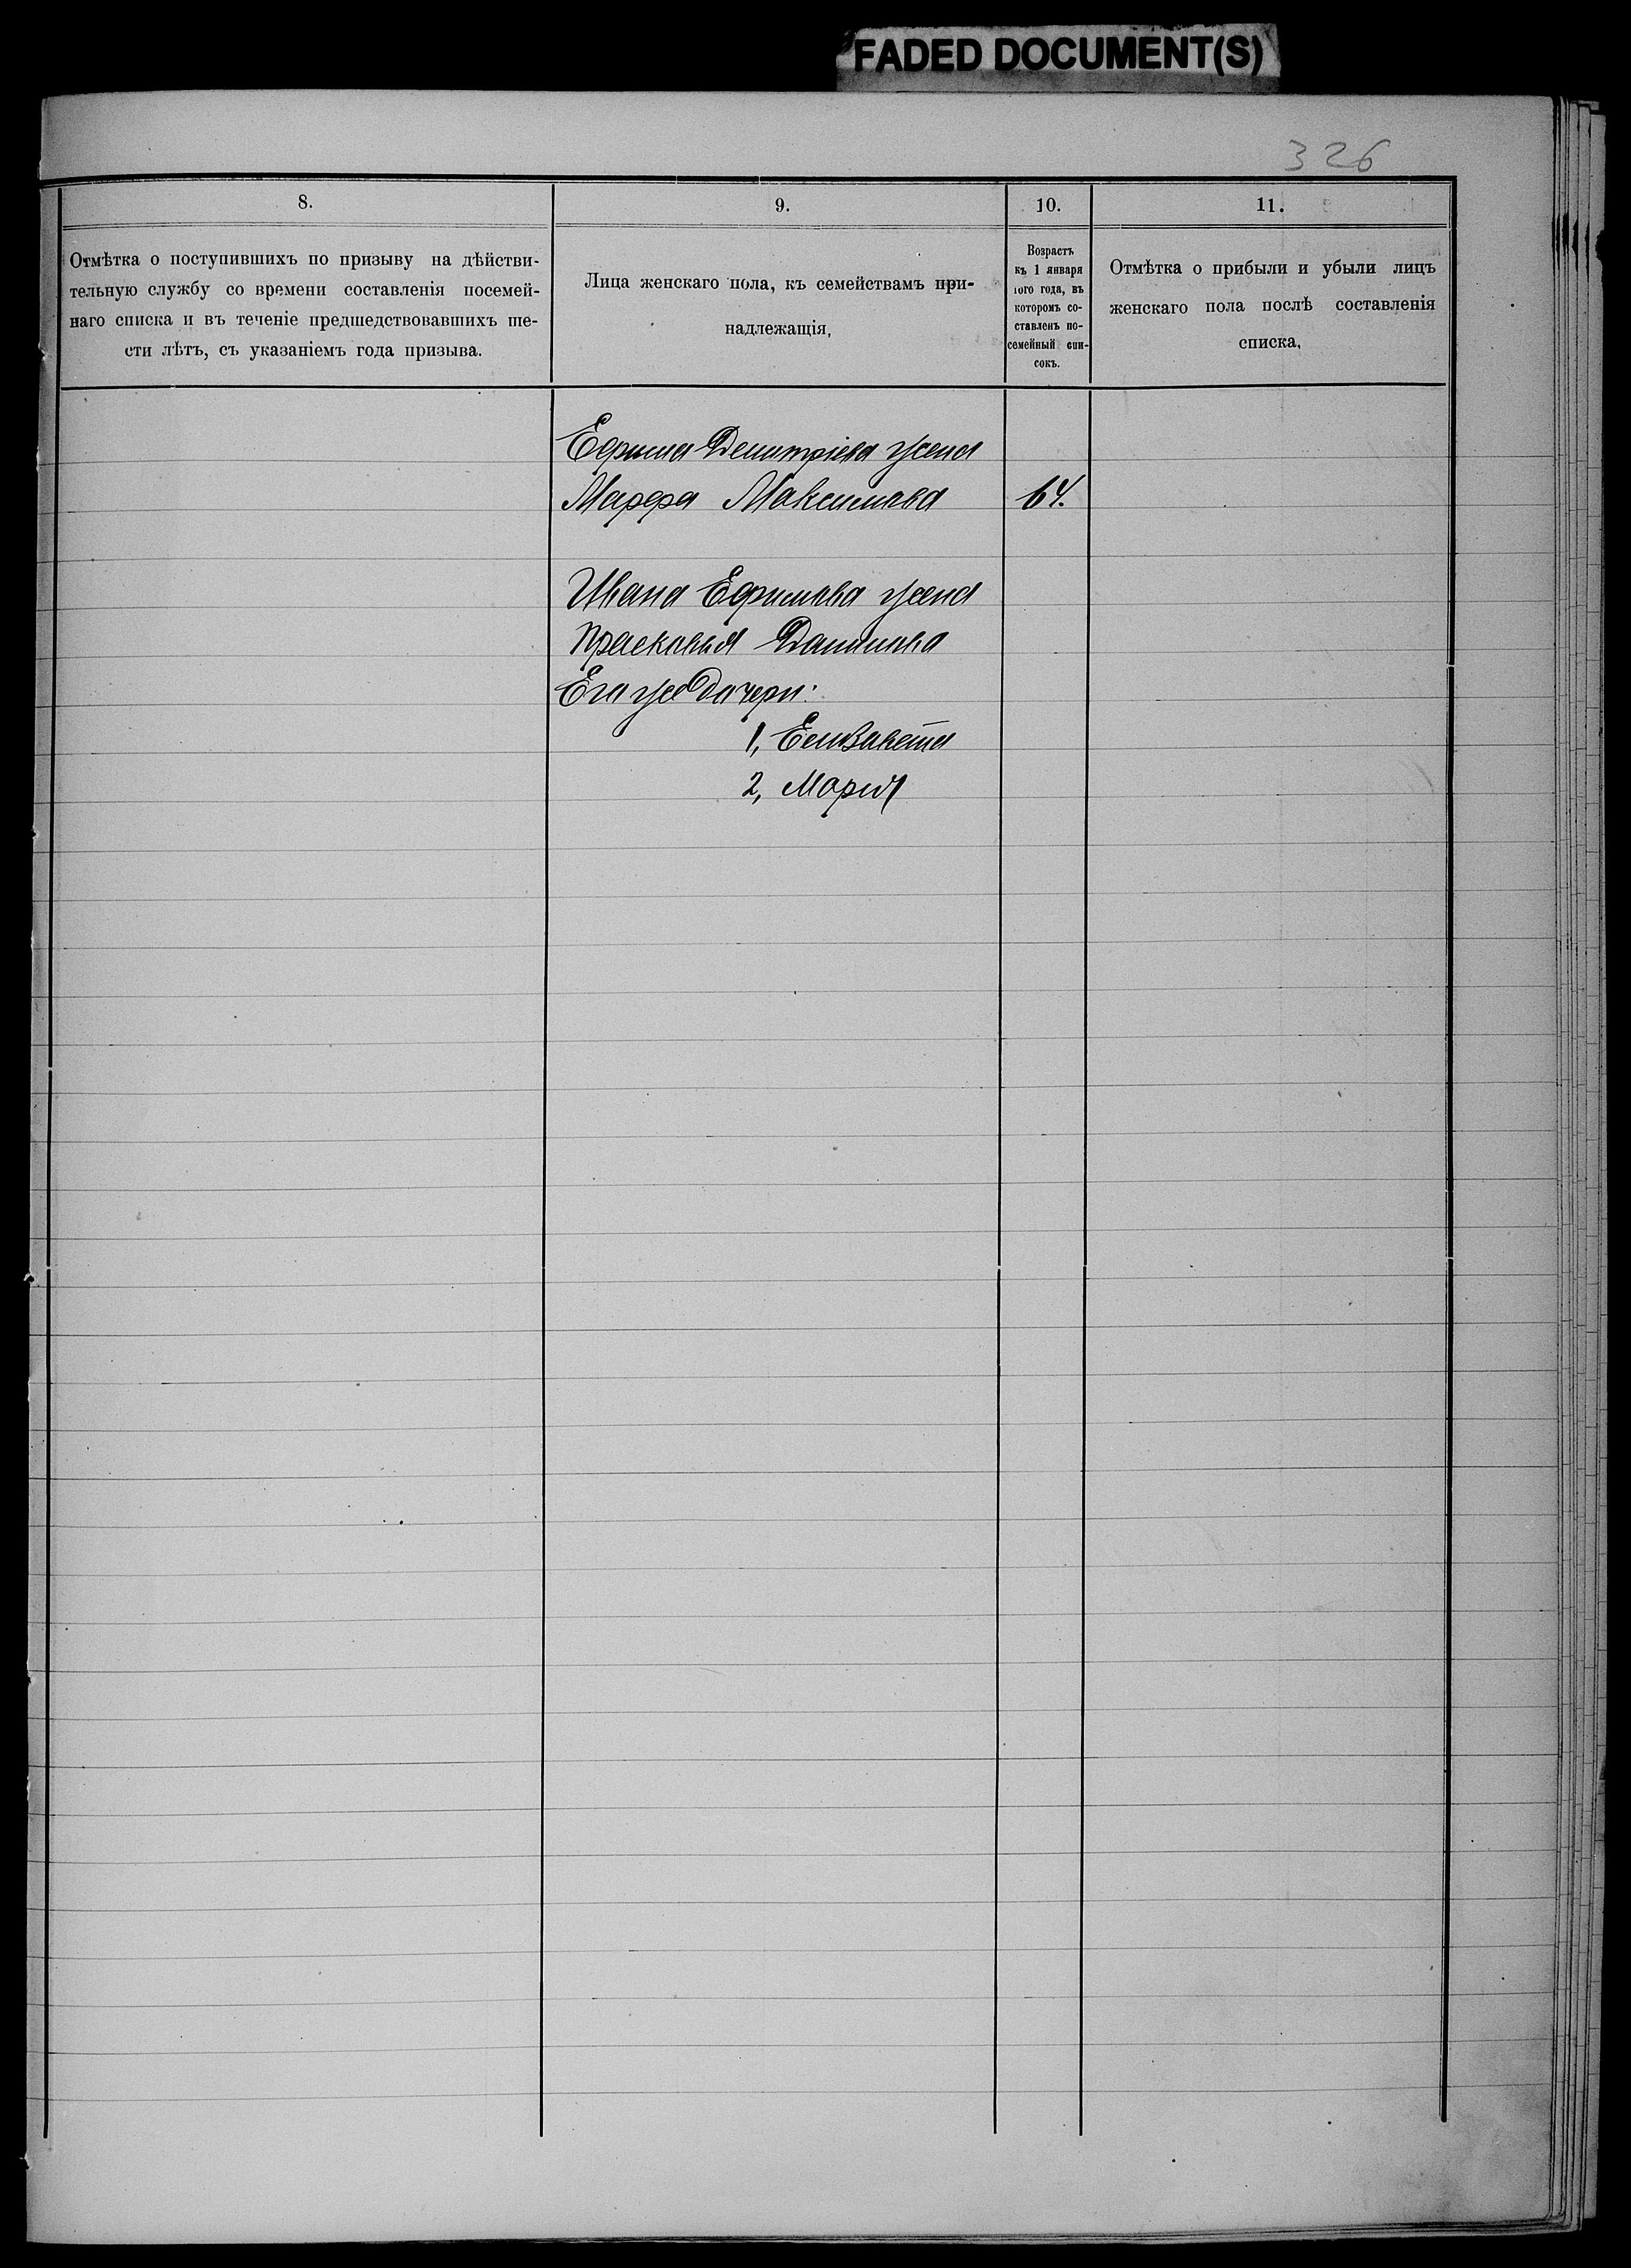 FADED DOCUMENT(S)
326
8.
Отмѣтка о поступившихъ по призыву на дѣйстви-
тельную службу со времени составленія посемей-
наго списка и въ теченіе предшедствовавшихъ ше-
сти лѣтъ, съ указаніемъ года призыва.
9.
Лица женскаго пола, къ семействамъ при-
надлежащія,
10.
Возрастъ
къ 1 января
того года, въ
которомъ со-
ставленъ по-
семейный спи-
сокъ.
11.
Отмѣтка о прибыли и убыли лицъ
женскаго пола послѣ составленія
списка,
Ефима Демитріева жена
Марфа Максимова 64.
Ивана Ефимова жена
Прасковья Данилова
Его же дочери:
1, Елизавета
2, Марія